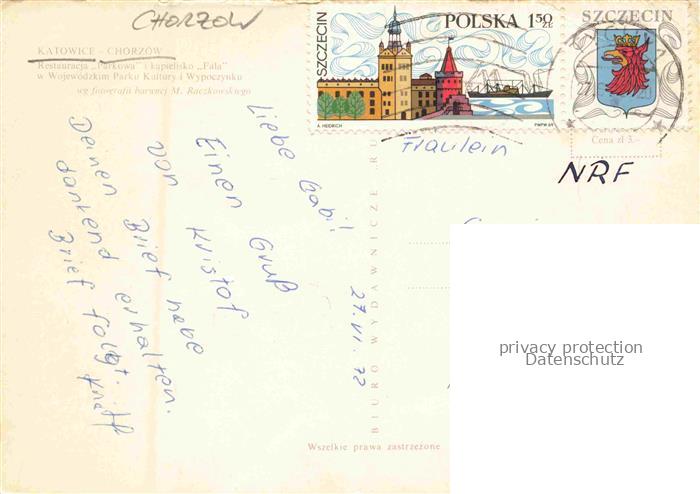 CHORZOW
KATOWICE - CHORZÓW
Restauracja „Parkowa” i kąpielisko „Fala”
w Wojewódzkim Parku Kultury i Wypoczynku
wg fotografii barwnej M. Raczkowskiego
SZCZECIN
POLSKA 1,50 ZŁ
A. HEIDRICH
PWPW 69
SZCZECIN
Cena zł 3.–
Fräulein
NRF
27.VI.72
Liebe Gabi!
Einen Gruß
von Kristof
Deinen Brief habe
dankend erhalten.
Brief folgt.
BIURO WYDAWNICZE RU
Wszelkie prawa zastrzeżone
privacy protection
Datenschutz